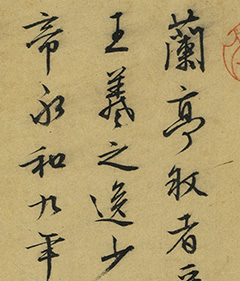 蘭亭敘者
王羲之逸少
帝永和九年